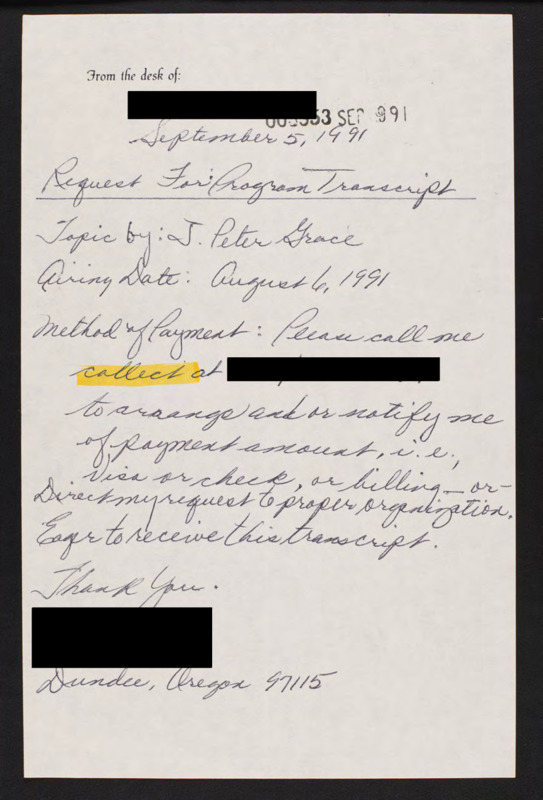 From the desk of:
53 SEP 991
September 5, 1991
Request For Program Transcript
Topic by: J. Peter Grace
Airing Date: August 6, 1991
Method of Payment: Please call me
collect at
to arrange and or notify me
of payment amount, i.e.,
Visa or check, or billing — or —
Direct my request to proper organization.
Eager to receive this transcript.
Thank You.
Dundee, Oregon 97115